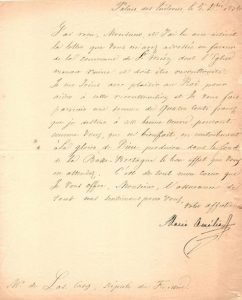 Palais des Tuileries le 5 
J'ai reçu, Monsieur, et j'ai lu avec intérêt
la lettre que vous m'avez adressée en faveur
de la commune de St dont l'Eglise
menace ruine et doit être reconstruite.
Je me joins avec plaisir au Roi pour
aider à cette reconstruction et je vous fais
parvenir une somme de quatre cents francs
que je destine à cette bonne œuvre pensant
comme vous, que ce bienfait en contribuant
à la gloire de Dieu produira dans le fond
de la Basse-Bretagne le bon effet que vous
en attendez. C'est de tout mon cœur que
je vous offre, Monsieur, l'assurance de
tous mes sentiments pour vous.
Votre affectionnée
Marie Amélie
Mr de Las Cases, député du Finistère